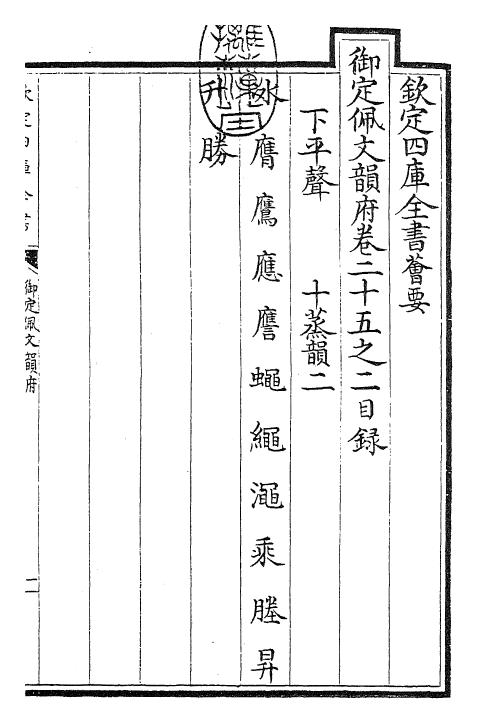 欽定四庫全書薈要
御定佩文韻府卷二十五之二目録
下平聲　十蒸韻二
冰　膺　鷹　應　譍　蠅　繩　澠　乘　塍　昇
升　勝
御定佩文韻府